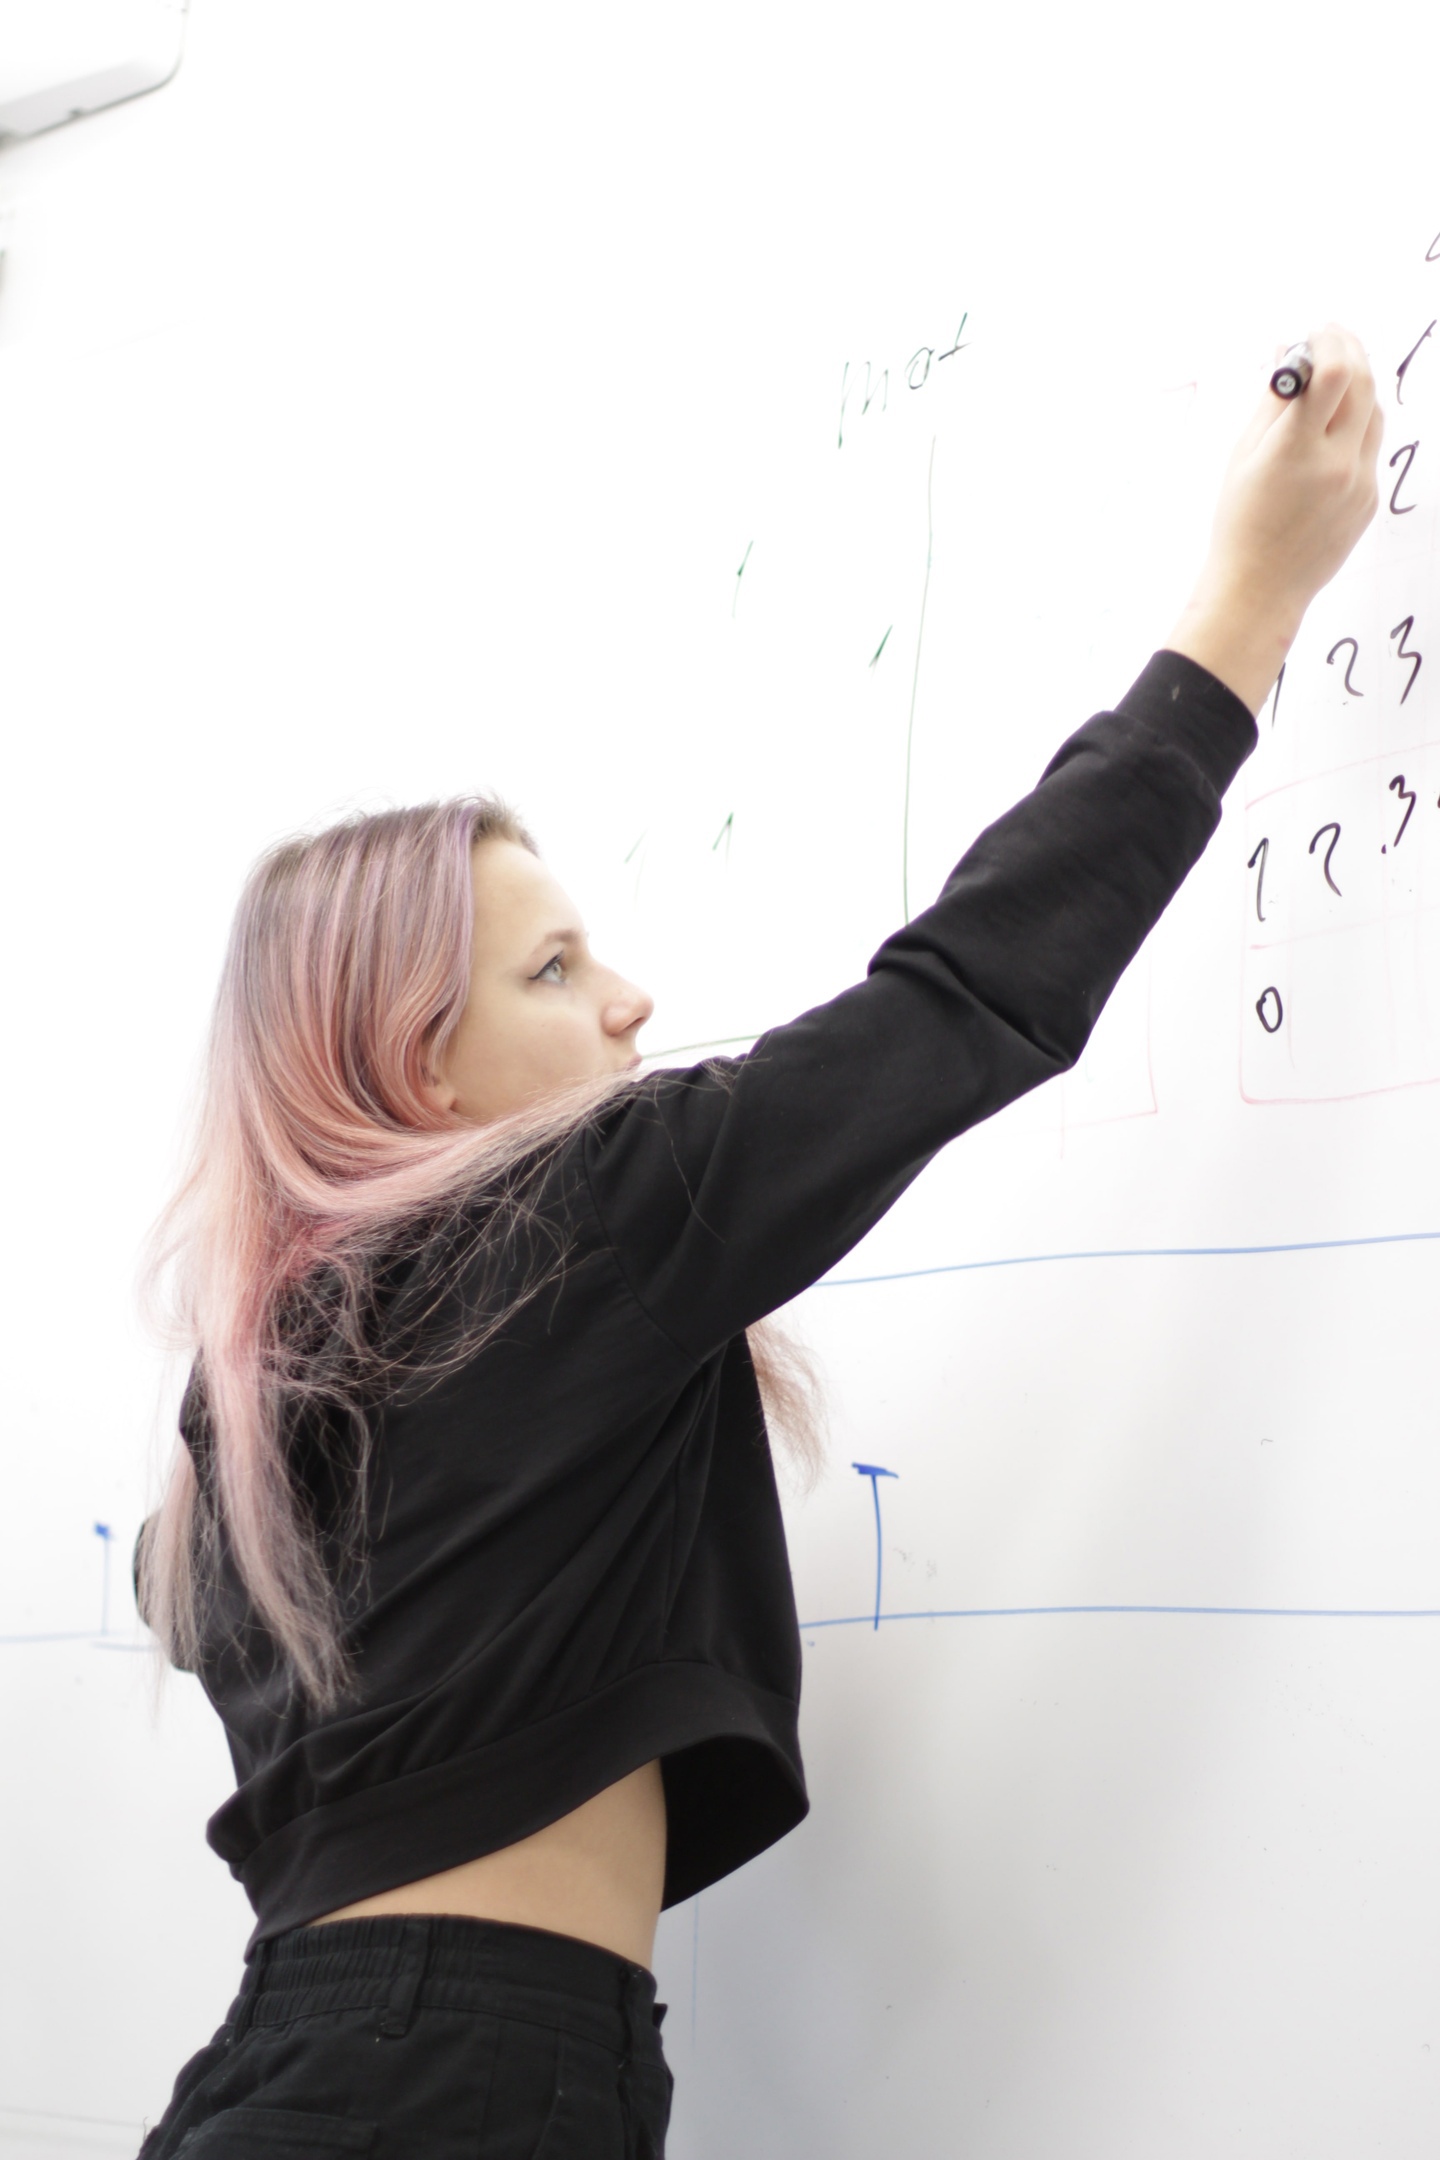 mat
1
1
1 1
1
2
1 2 3
1 2 3
0